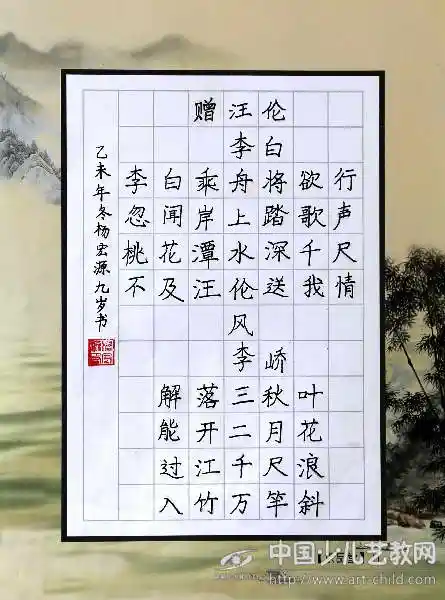 赠汪伦
李白
李白乘舟将欲行
忽闻岸上踏歌声
桃花潭水深千尺
不及汪伦送我情
风
李峤
解落三秋叶
能开二月花
过江千尺浪
入竹万竿斜
乙未年冬杨宏源九岁书
中国少儿艺教网
http://www.art-child.com